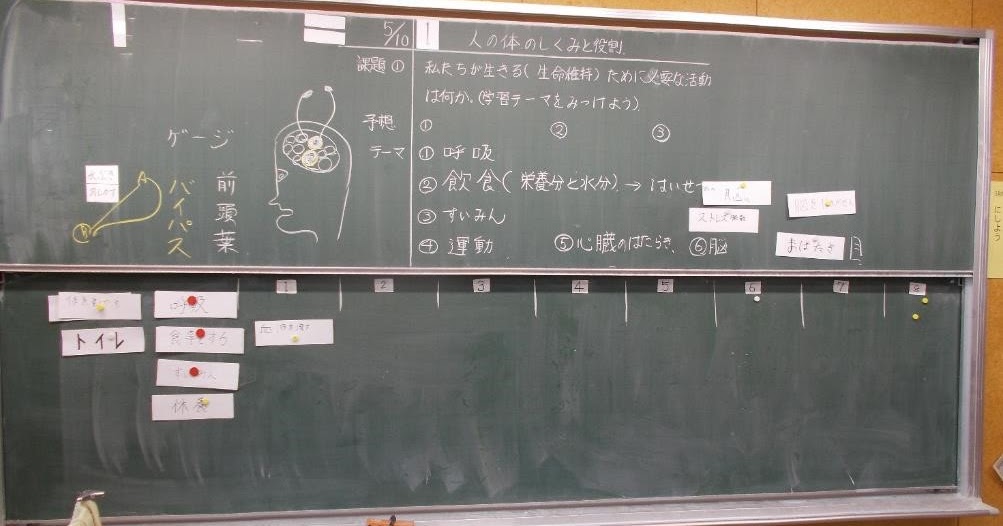 5/10
1 人の体のしくみと役割
課題① 私たちが生きる(生命維持)ために必要な活動
は何か。(学習テーマをみつけよう)
予想 ① ② ③
テーマ ① 呼吸
② 飲食(栄養分と水分)→はいせつ
③ すいみん
④ 運動 ⑤心臓のはたらき ⑥脳
ストレス
目
ゲージ
前頭葉
バイパス
A
B
1 2 3 4 5 6 7 8
呼吸
トイレ
食事をする
すいみん
休養
にしよう